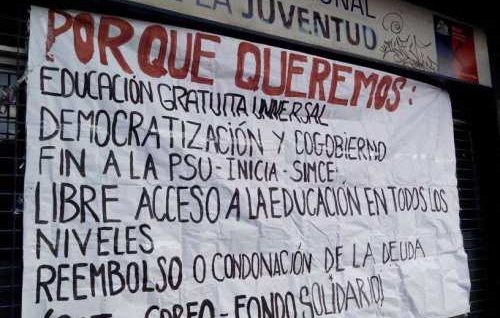 ONAL
LA JUVENTUD
PORQUE QUEREMOS:
EDUCACIÓN GRATUITA UNIVERSAL
DEMOCRATIZACIÓN Y COGOBIERNO
FIN A LA PSU-INICIA-SIMCE
LIBRE ACCESO A LA EDUCACIÓN EN TODOS LOS
NIVELES
REEMBOLSO O CONDONACIÓN DE LA DEUDA
CORFO-FONDO SOLIDARIO)